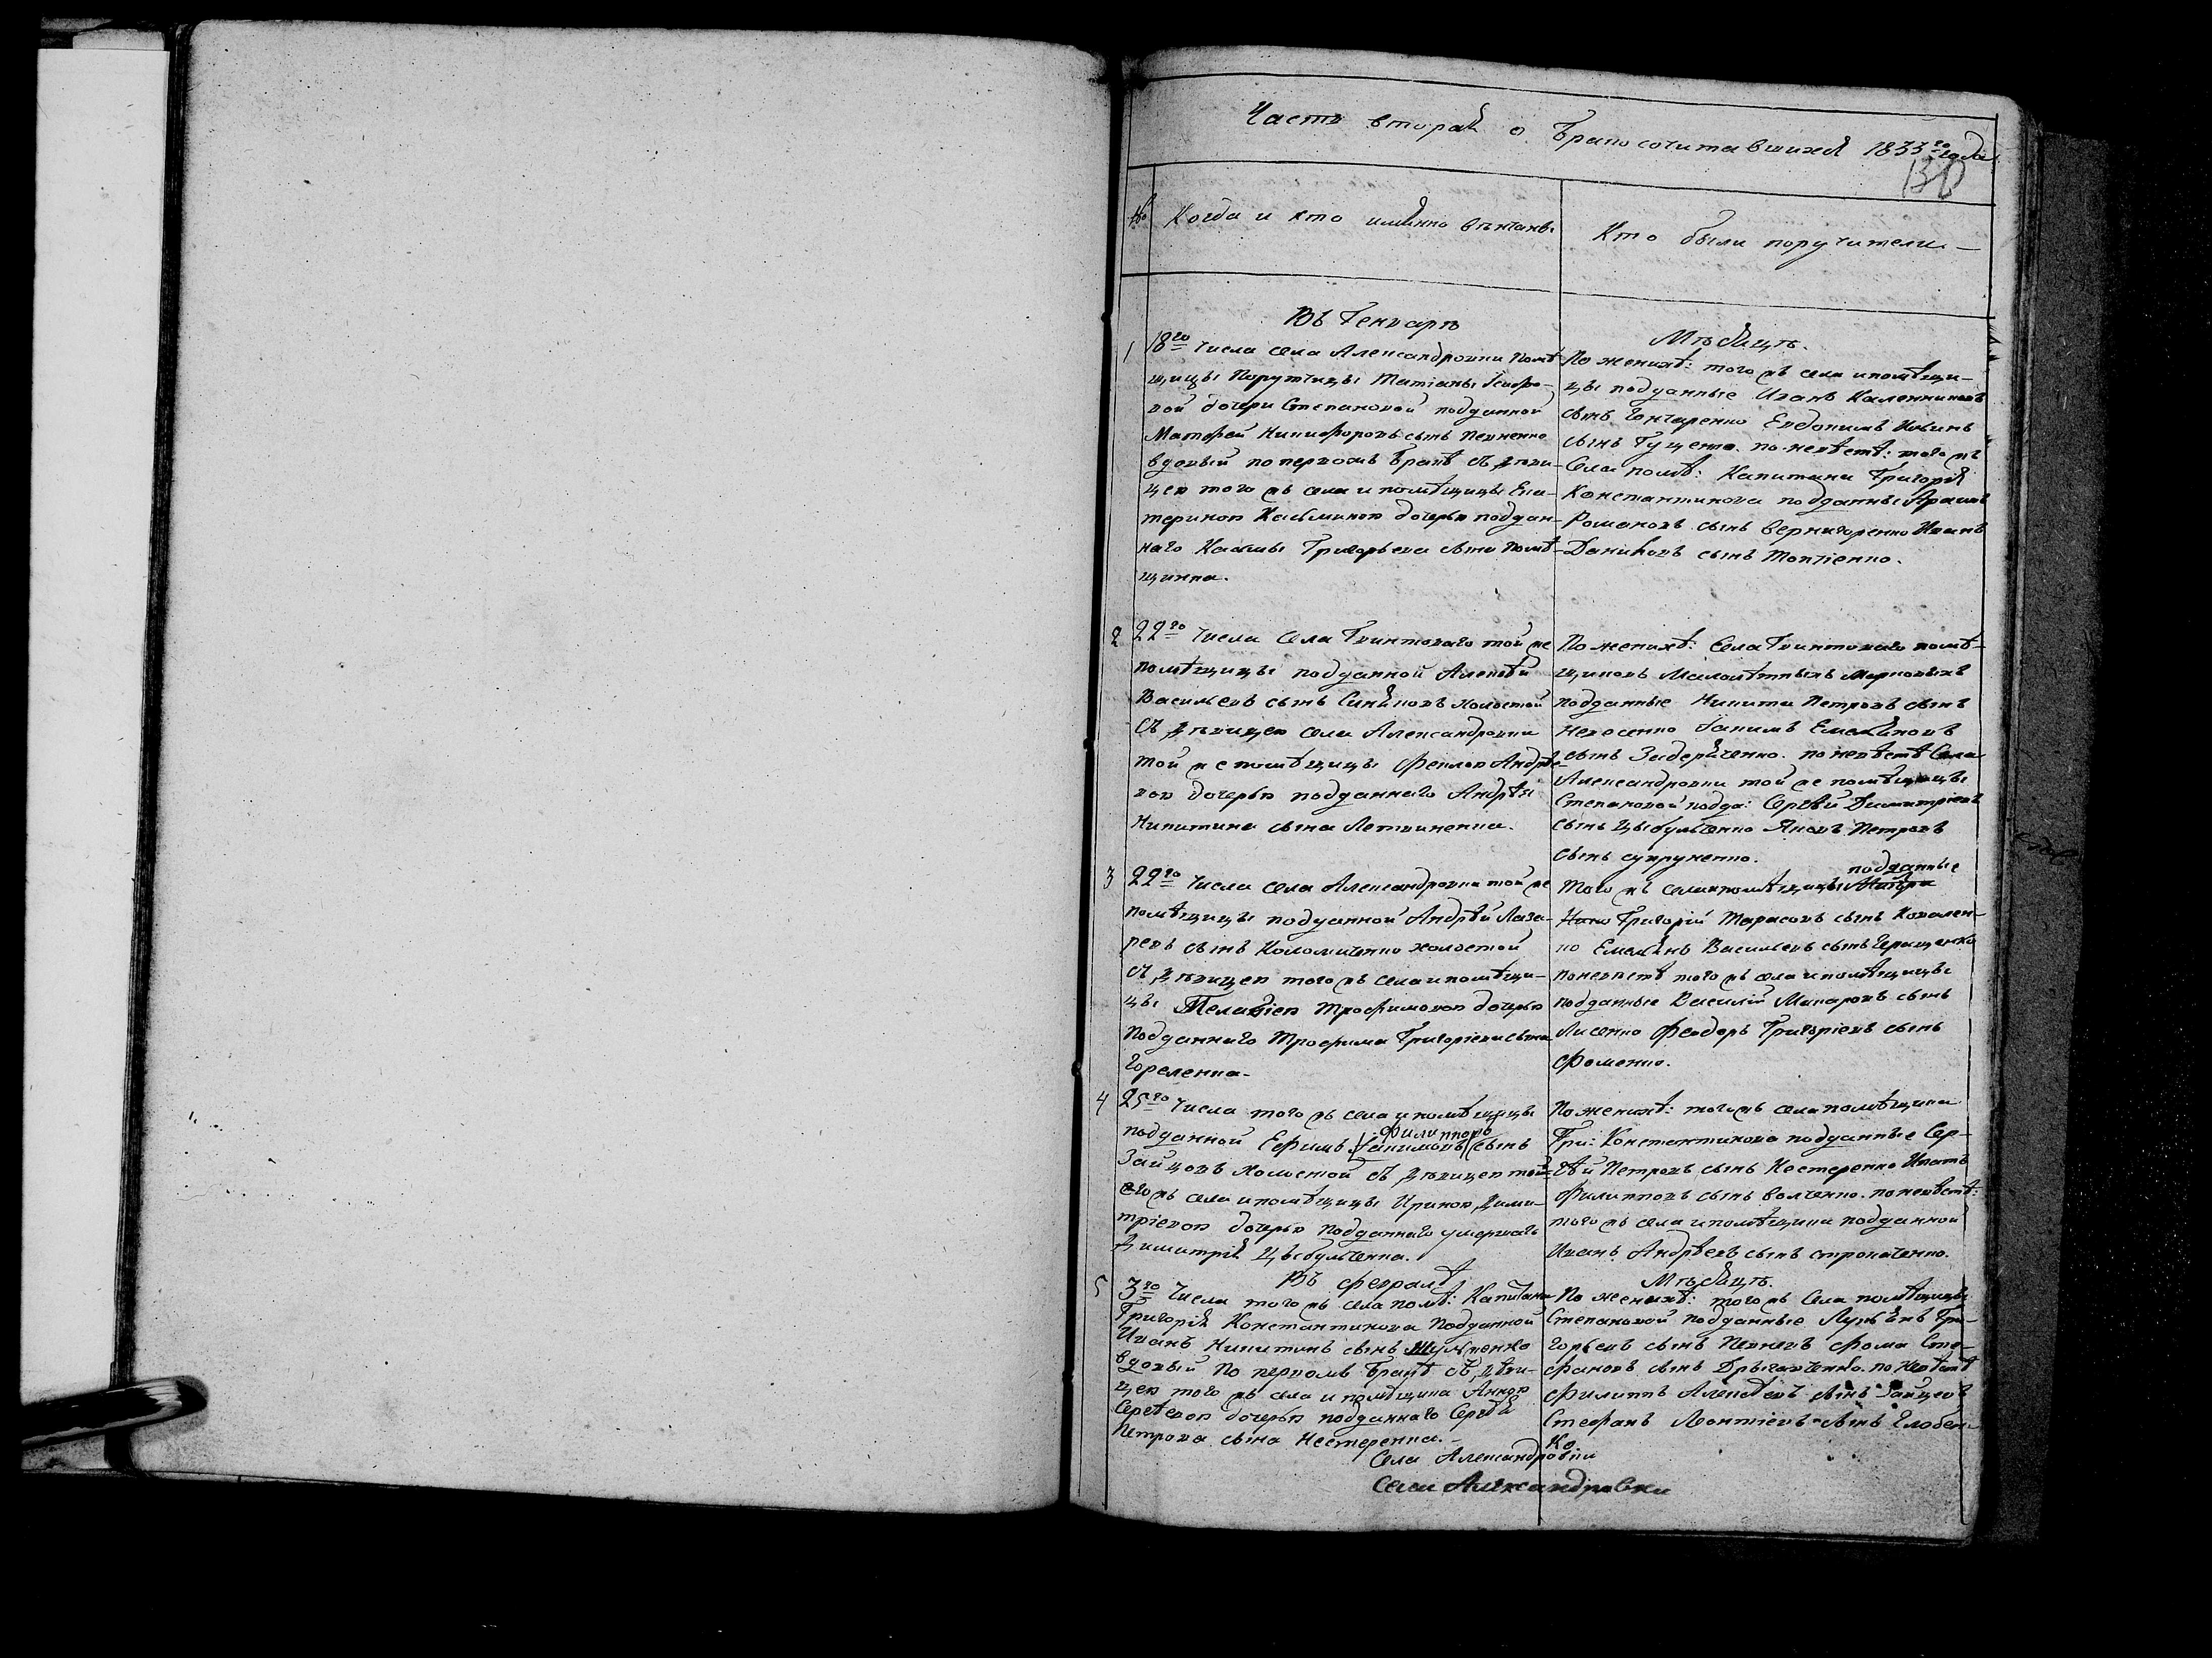 Часть вторая о Бракосочитавшихся 1833го года
130
№ Когда и кто имянно вѣнчаны
Кто были поручители
Въ Генварѣ
Мѣсяцѣ.
1
18го числа села Александровки помѣ-
щицы Порутчицы Татіаны
вой дочери Степановой подданной
Матфей Никифоровъ сынъ Пехненко
вдовый по первомъ бракѣ съ дѣви-
цею того жъ села и помѣщицы Ека-
териною Касьминою дочерью поддан-
наго Касьмы Григорьева сына
По женихѣ: того жъ села и помѣщи-
цы подданные Иванъ Калениковъ
сынъ Гончаренко Евдокимъ
сынъ Гущенко. по невѣстѣ: того жъ
Села помѣ: Капитана Григорія
Константинова подданные
Романовъ сынъ Вернигоренко Иванъ
Даниловъ сынъ
2
22го числа села Гвинтоваго той же
помѣщицы подданной Алексѣй
Васильевъ сынъ Синяковъ холостой
съ дѣвицею села Александровки
той же помѣщицы Феклою Андрѣе-
вою дочерью подданнаго Андрѣя
Никитина сына Летвиненка.
По женихѣ: Села Гвинтоваго помѣ-
щиковъ Малолѣтныхъ Марковыхъ
подданные Никита Петровъ сынъ
Іакимъ Емельяновъ
сынъ по невѣстѣ Села
Александровки той же помѣщицы
Степановой подда: Сергѣй Димитріевъ
сынъ Цыбульченко Яковъ Петровъ
сынъ супруненко.
3
22го числа села Александровки той же
помѣщицы подданной Андрѣй Лаза-
ревъ сынъ Коломиченко холостой
съ дѣвицею того жъ села и помѣщи-
цы Пелагіею Трофимовою дочерью
Подданнаго Трофима Григоріева сына
Гореленка.
подданные
Того жъ села и помѣщицы
Григорій Тарасовъ сынъ Ковален-
ко Емельянъ Васильевъ сынъ Геращенко
по невѣстѣ того жъ села и помѣщицы
подданные Василій Макаровъ сынъ
Лисенко Феодоръ Григоріевъ сынъ
Фоменко.
4
25го числа того жъ села и помѣщицы
Филипповъ
подданной Ефимъ Іакимовъ сынъ
Зайцовъ холостой съ дѣвицею той
жъ села и помѣщицы Ириною Дими-
тріевою дочерью подданнаго умершаго
Димитрія Цыбульченка.
По женихѣ: того жъ села помѣщика
Гри: Константинова подданные Сер-
гѣй Петровъ сынъ Нестеренко Игнатъ
Филипповъ сынъ Волченко. по невѣстѣ:
того жъ села и помѣщика подданной
Иванъ Андрѣевъ сынъ строкаченко.
Въ февралѣ
Мѣсяцѣ.
5
3го числа того жъ села помѣ: Капитана
Григорія Константинова Подданной
Иванъ Никитинъ сынъ Шульженко
вдовый по первомъ бракѣ съ дѣви-
цею того жъ села и помѣщика Анною
Сергѣевою дочерью подданнаго Сергѣя
Петрова сына Нестеренка.
По женихѣ: того жъ села помѣщицы
Степановой подданные Лукьянъ Гри-
горьевъ сынъ Фома Сте-
фановъ сынъ по невѣстѣ
Филиппъ Алексѣевъ сынъ Зайцевъ
Стефанъ Леонтіевъ сынъ Глобен-
ко
Села Александровки
Села Александровки